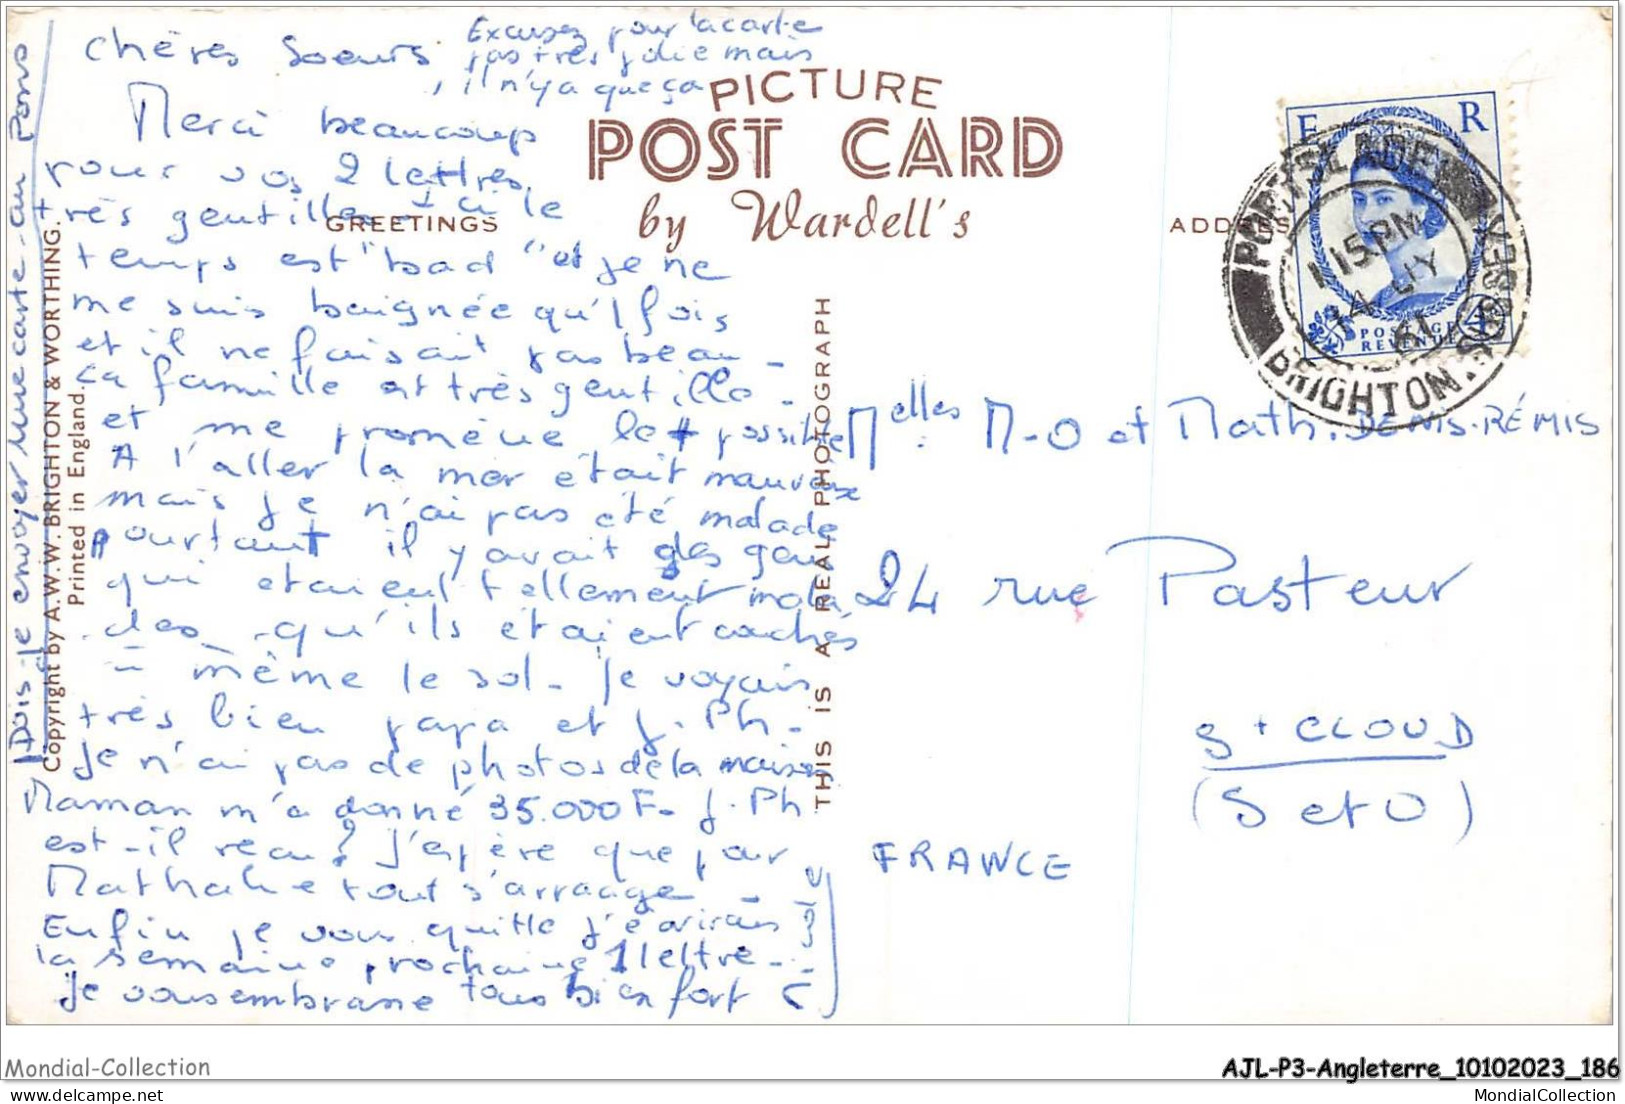 Chères Soeurs
Excusez pour la carte
pas très jolie mais
il n'y a que ça
PICTURE
POST CARD
by Wardell's
GREETINGS
ADDRESS
Merci beaucoup
pour vos 2 lettres
très gentilles. Ici le
temps est "bad" et je ne
me suis baignée qu'1 fois
et il ne faisait pas beau -
La famille est très gentille -
et me promène le + possible
A l'aller la mer était mauvaise
mais je n'ai pas été malade
pourtant il y avait des gens
qui étaient tellement mala
des qu'ils étaient couchés
à même le sol - Je voyais
très bien papa et J. Ph -
Je n'ai pas de photos de la maison
Maman m'a donné 35.000 F - J. Ph
est-il reçu ? J'espère que pour
Mathalie tout s'arrange -
Enfin je vous quitte j'écrirais
la semaine prochaine 1 lettre -
Je vous embrasse tous bien fort
Dois-je envoyer une carte au
Copyright by A.W.W. BRIGHTON & WORTHING.
Printed in England.
THIS IS A REAL PHOTOGRAPH
E R
POSTAGE
REVENUE
4D
PORTSLADE
1 15 PM
14 JY
61
BRIGHTON. SUSSEX
Melles M-O et Math. DENIS-RÉMIS
24 rue Pasteur
St CLOUD
(S et O)
FRANCE
Mondial-Collection
AJL-P3-Angleterre_10102023_186
https://www.delcampe.net
MondialCollection